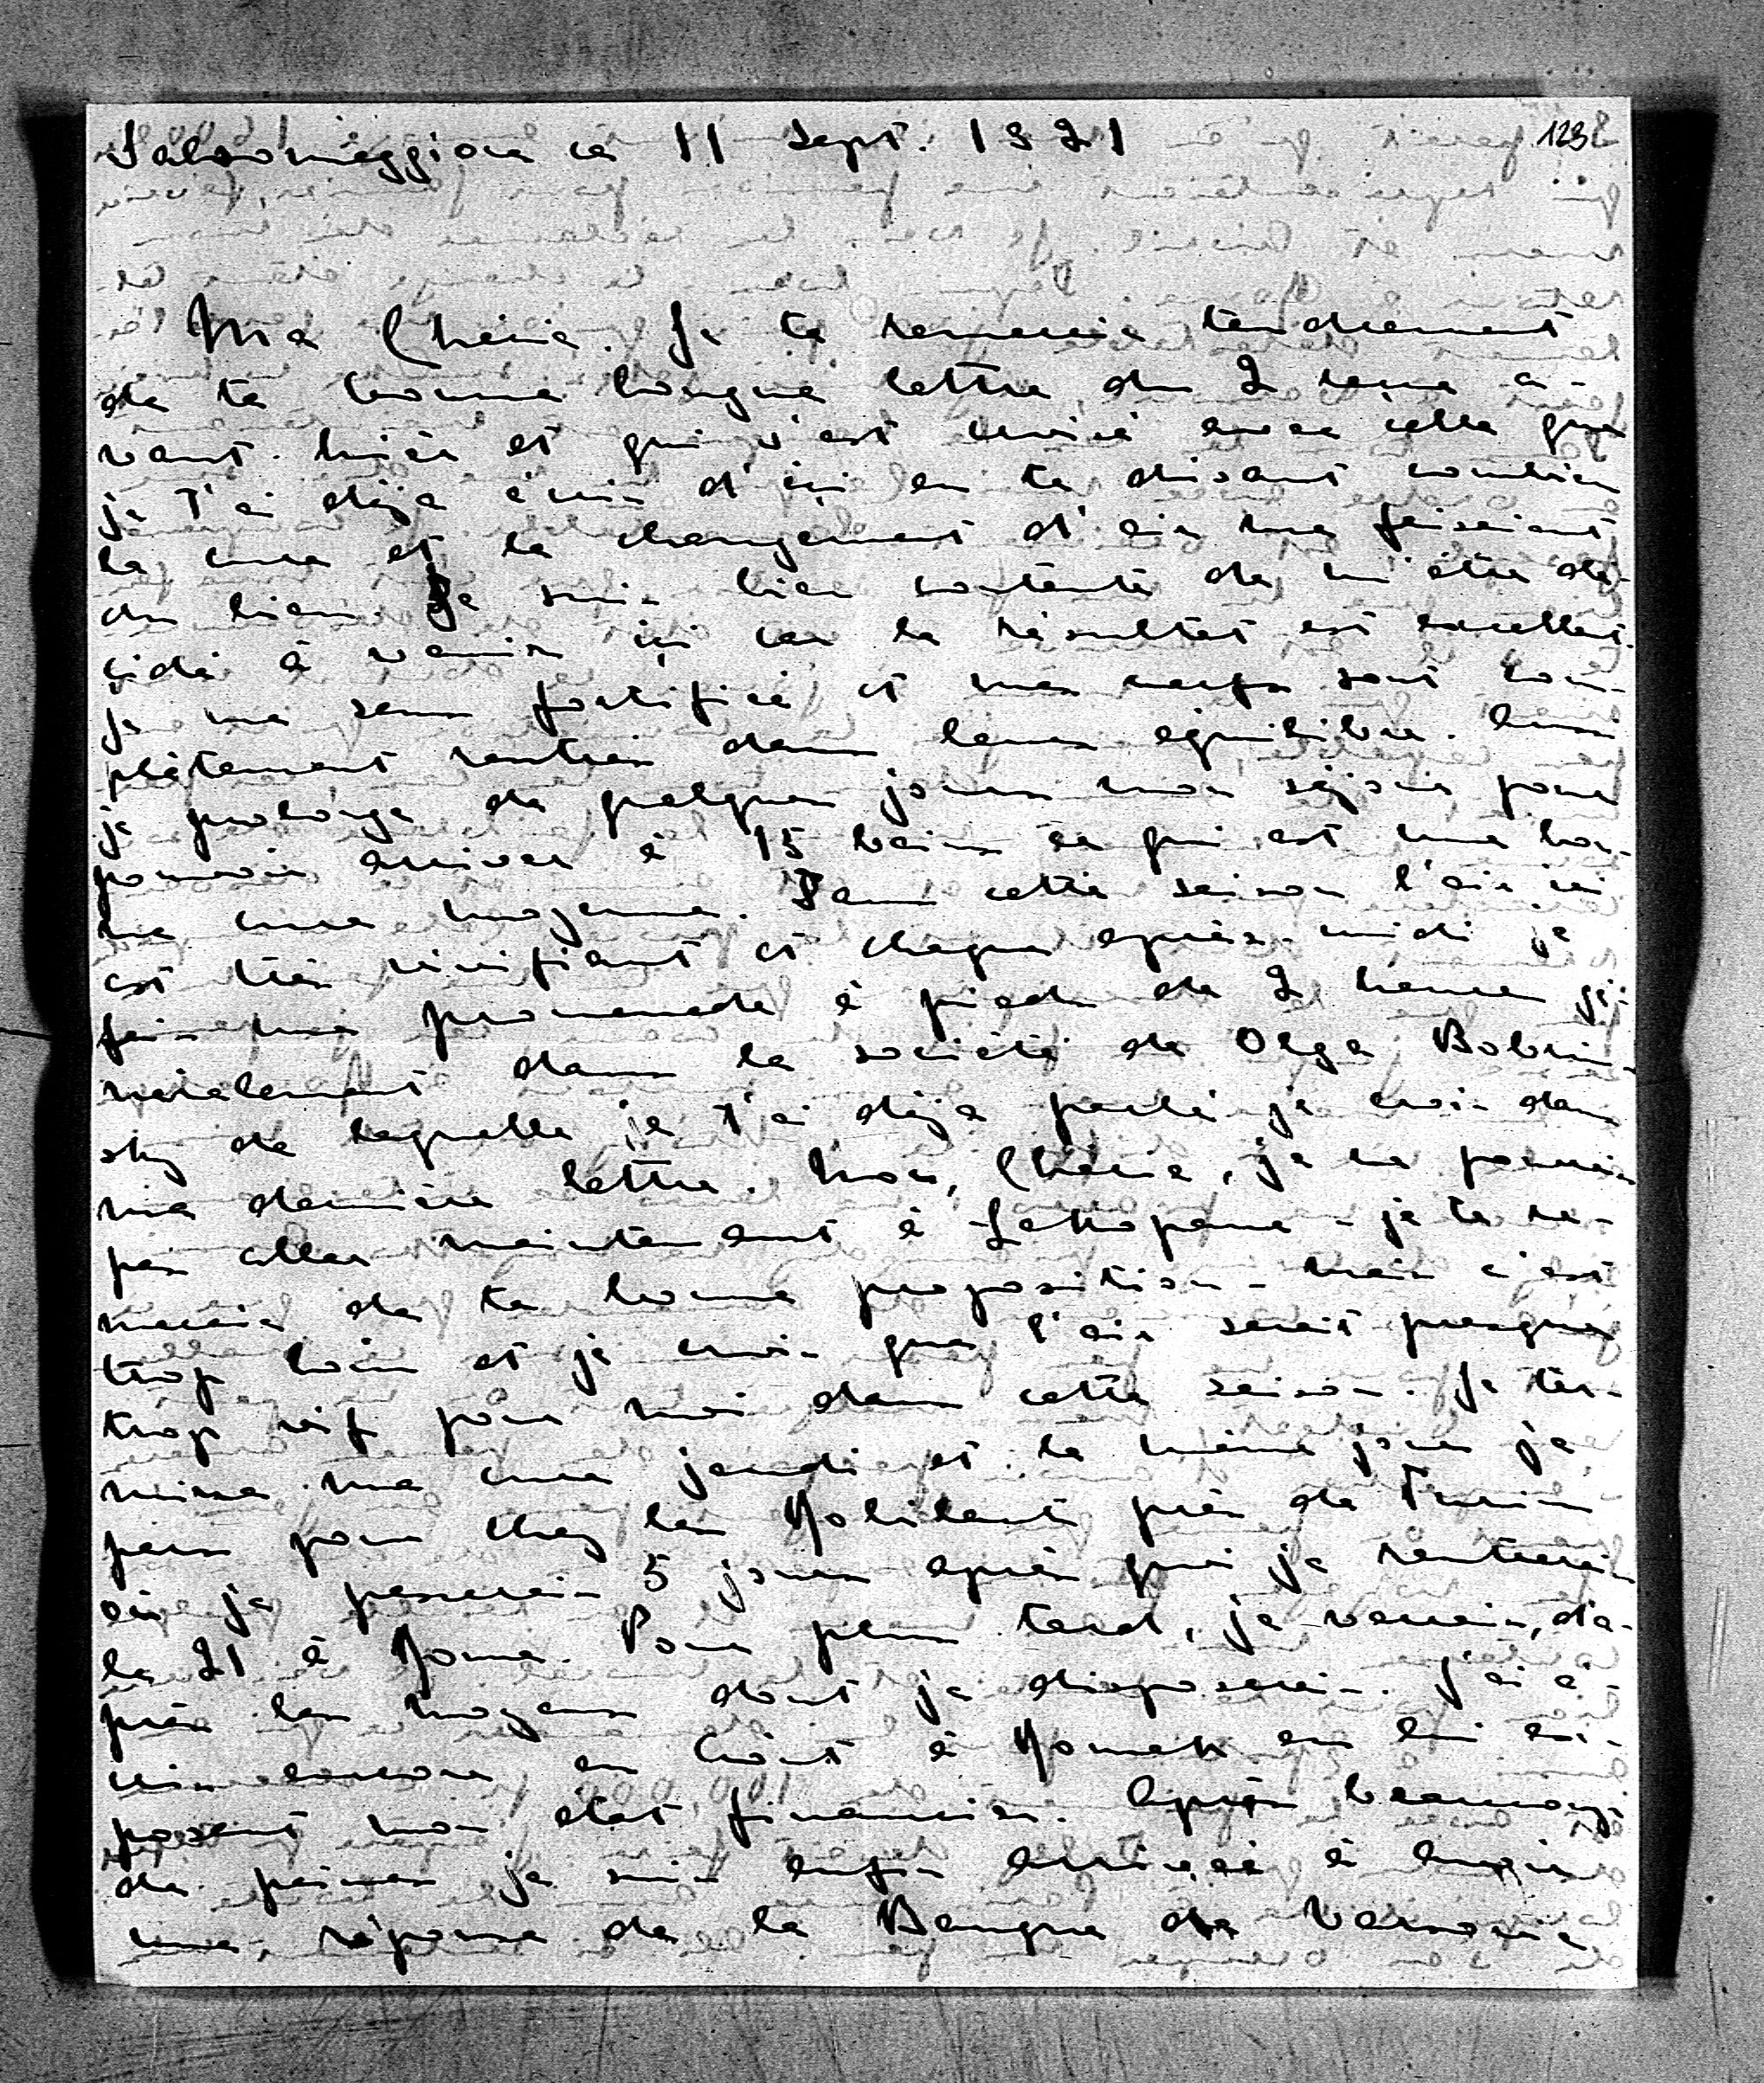 Salsomaggiore ce 11 Sept. 1921
123
Ma Chérie. Je te remercie tendrement
de ta bonne longue lettre du 2 reçue a-
vant-hier et qui s'est croisé avec celle que
je t'ai déjà écris d'ici en te disant combien
la cure et le changement d'air me faisaient
du bien. Je suis bien contente de m'être dé-
cidé à venir ici car le résultat est excellent.
Je me sens fortifiée et mes nerfs sont com-
plètement rentrés dans leur équilibre. Aussi
je prolonge de quelques jours mon séjour pour
pouvoir arriver à 15 bains ce qui est une bon-
ne cure moyenne. Dans cette saison l'air ici
est très vivifiant et chaque après-midi je
fais une promenade à pieds de 2 heures gé-
néralement dans la société de Olga Bobrin-
sky de laquelle je t'ai déjà parlé je crois dans
ma dernière lettre. Non, Chérie, je ne pourrais
pas aller maintenant à Zakopane - je te re-
mercie de ta bonne proposition - mais c'est
trop loin et je crois que l'air serait presque
trop vif pour moi dans cette saison. Je ter-
mine ma cure jeudi et le même jour je
pars pour chez les Robilant près de Turin
où je passerais 5 jours après quoi je rentrerai
le 21 à Rome. Pour plus tard, je verrais, d'a-
près les moyens dont je disposerais. J'ai é-
cris encore en Août à Romek en lui ex-
posant mon état financier. Après beaucoup
de peines je suis enfin arrivée à avoir
une réponse de la Banque de Varsovie